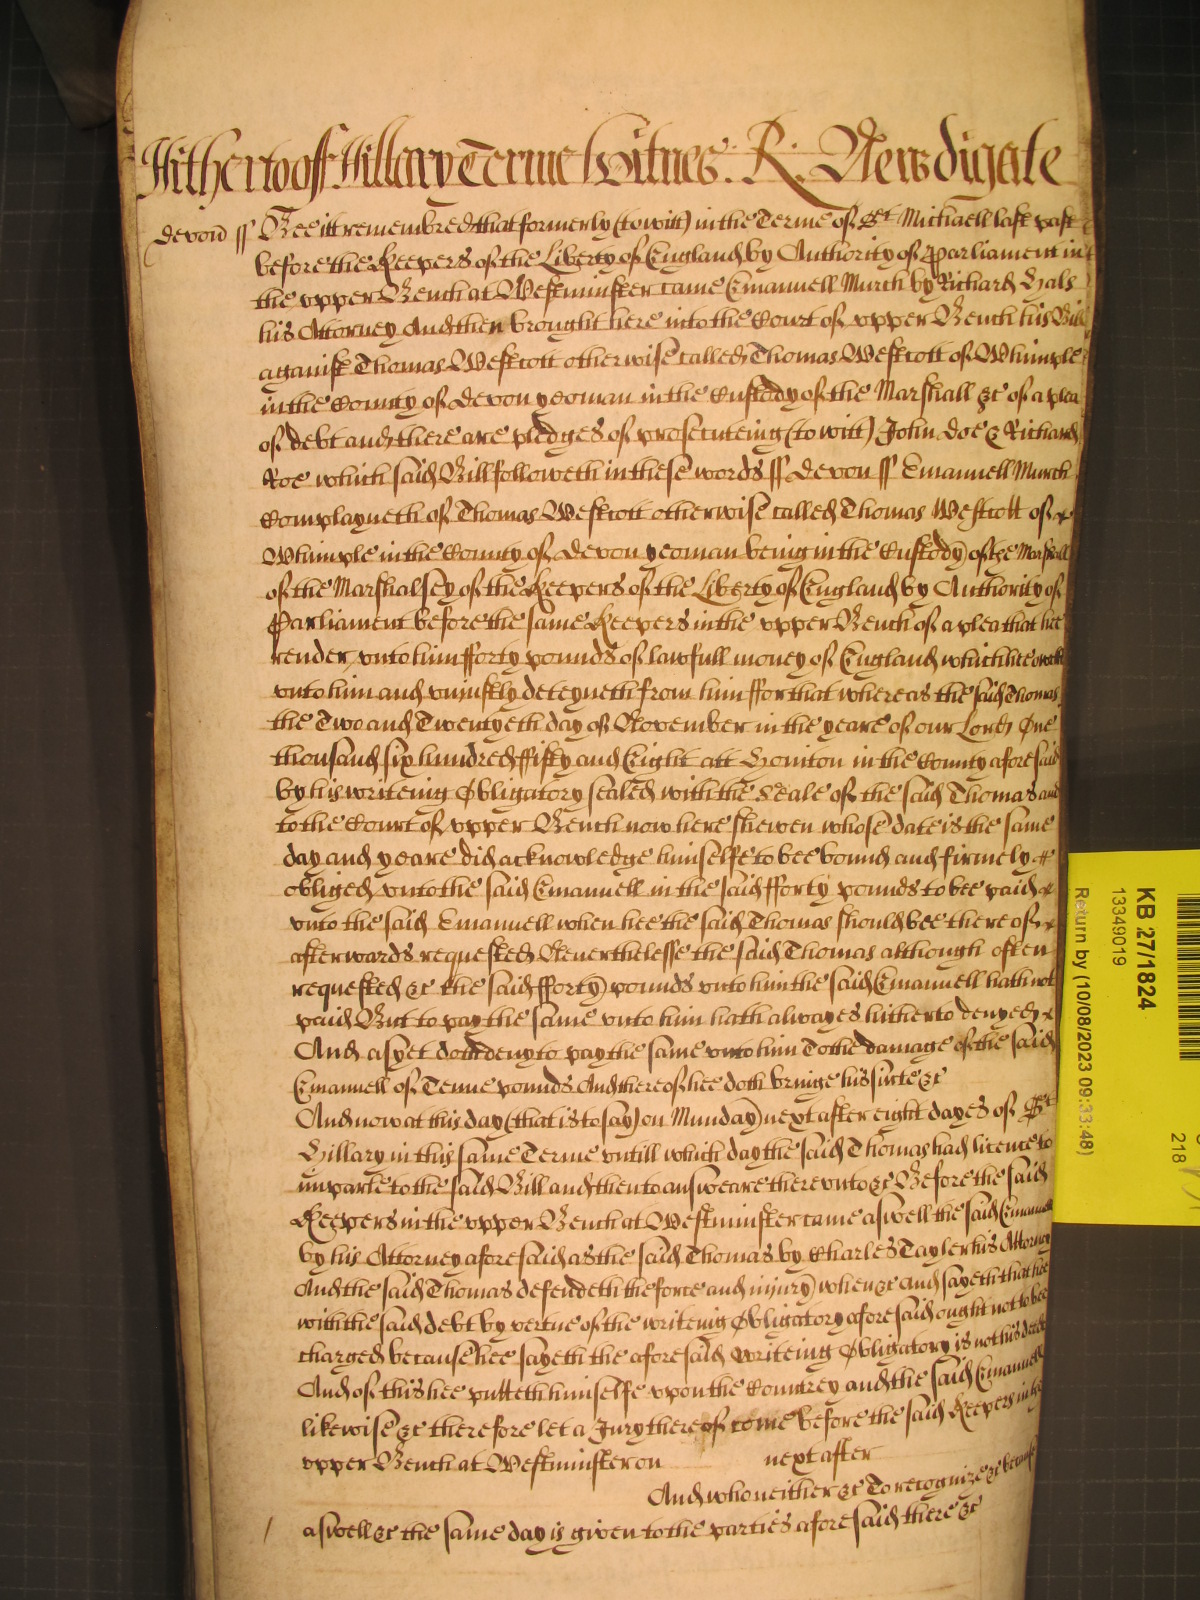 Hitherto off Hillary Terme Witnes: R: Newdigate
devon ss Bee itt remembred that formerly (to witt) in the Terme of St Michaell last past
before the Keepers of the Liberty of England by Authority of parliament in
the vpper Bench at Westminster came Emanuell Murch by Richard Hals
his Attorney And then brought here into the Court of vpper Bench his Bill
against Thomas Westcott otherwise called Thomas Westcott of Whimple
in the County of devon yeoman in the Custody of the Marshall &c of a plea
of debt and there are pledges of prosecuteing (to witt) John doe & Richard
Roe which said Bill followeth in these words ss devon ss Emanuell Murch
Complayneth of Thomas Westcott otherwise called Thomas Westcott of
Whimple in the County of devon yeoman being in the Custody of the Marshall
of the Marshalsey of the Keepers of the Liberty of England by Authority of
Parliament before the same Keepers in the vpper Bench of a plea that hee
render vnto him fforty pounds of lawfull money of England which hee oweth
vnto him and vniustly deteyneth from him ffor that whereas the said Thomas
the Two and Twentyeth day of November in the yeare of our Lord One
thousand six hundred ffifty and Eight att Honiton in the County aforesaid
by his writeing Obligatory sealed with the Seale of the said Thomas and
to the Court of vpper Bench now here shewen whose date is the same
day and yeare did acknowledge himselfe to bee bound and firmely
obliged vnto the said Emanuell in the said fforty pounds to bee paid
vnto the said Emanuell when hee the said Thomas should bee thereof
afterwards requested Neuerthelesse the said Thomas although often
requested &c the said fforty pounds vnto him the said Emanuell hath not
paid But to pay the same vnto him hath alwayes hitherto denyed
And as yet doth deny to pay the same vnto him To the damage of the said
Emanuell of Tenne pounds And thereof hee doth bringe his suite &c
And now at this day (that is to say) on Munday next after eight dayes of St
Hillary in this same Terme vntill which day the said Thomas had licence to
imparle to the said Bill and then to answeare therevnto &c Before the said
Keepers in the vpper Bench at Westminster came aswell the said Emanuell
by his Attorney aforesaid as the said Thomas by Charles Tayler his Attorney
And the said Thomas defendeth the force and injury when &c and sayeth that hee
with the said debt by vertue of the writeing Obligatory aforesaid ought not to bee
charged because hee sayeth the aforesaid writeing Obligatory is not his deed
And of this hee putteth himselfe vpon the Countrey and the said Emanuell
likewise &c therefore let a Jury thereof come before the said Keepers in the
vpper Bench at Westminster on next after
And who neither &c To recognize &c because
aswell &c the same day is given to the parties aforesaid there &c
KB 27/1824
13349019
Return by (10/08/2023 09:33:48)
218